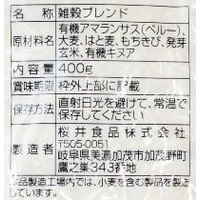 名称 雑穀ブレンド
原材料名 有機アマランサス(ペルー)、
大麦、はと麦、もちきび、発芽
玄米、有機キヌア
内容量 400g
賞味期限 枠外上部に記載
保存方法 直射日光を避けて、常温で
保存してください
製造者 桜井食品株式会社
〒505-0051
岐阜県美濃加茂市加茂野町
鷹之巣343番地
品製造工場内では、小麦を含む製品を製造し